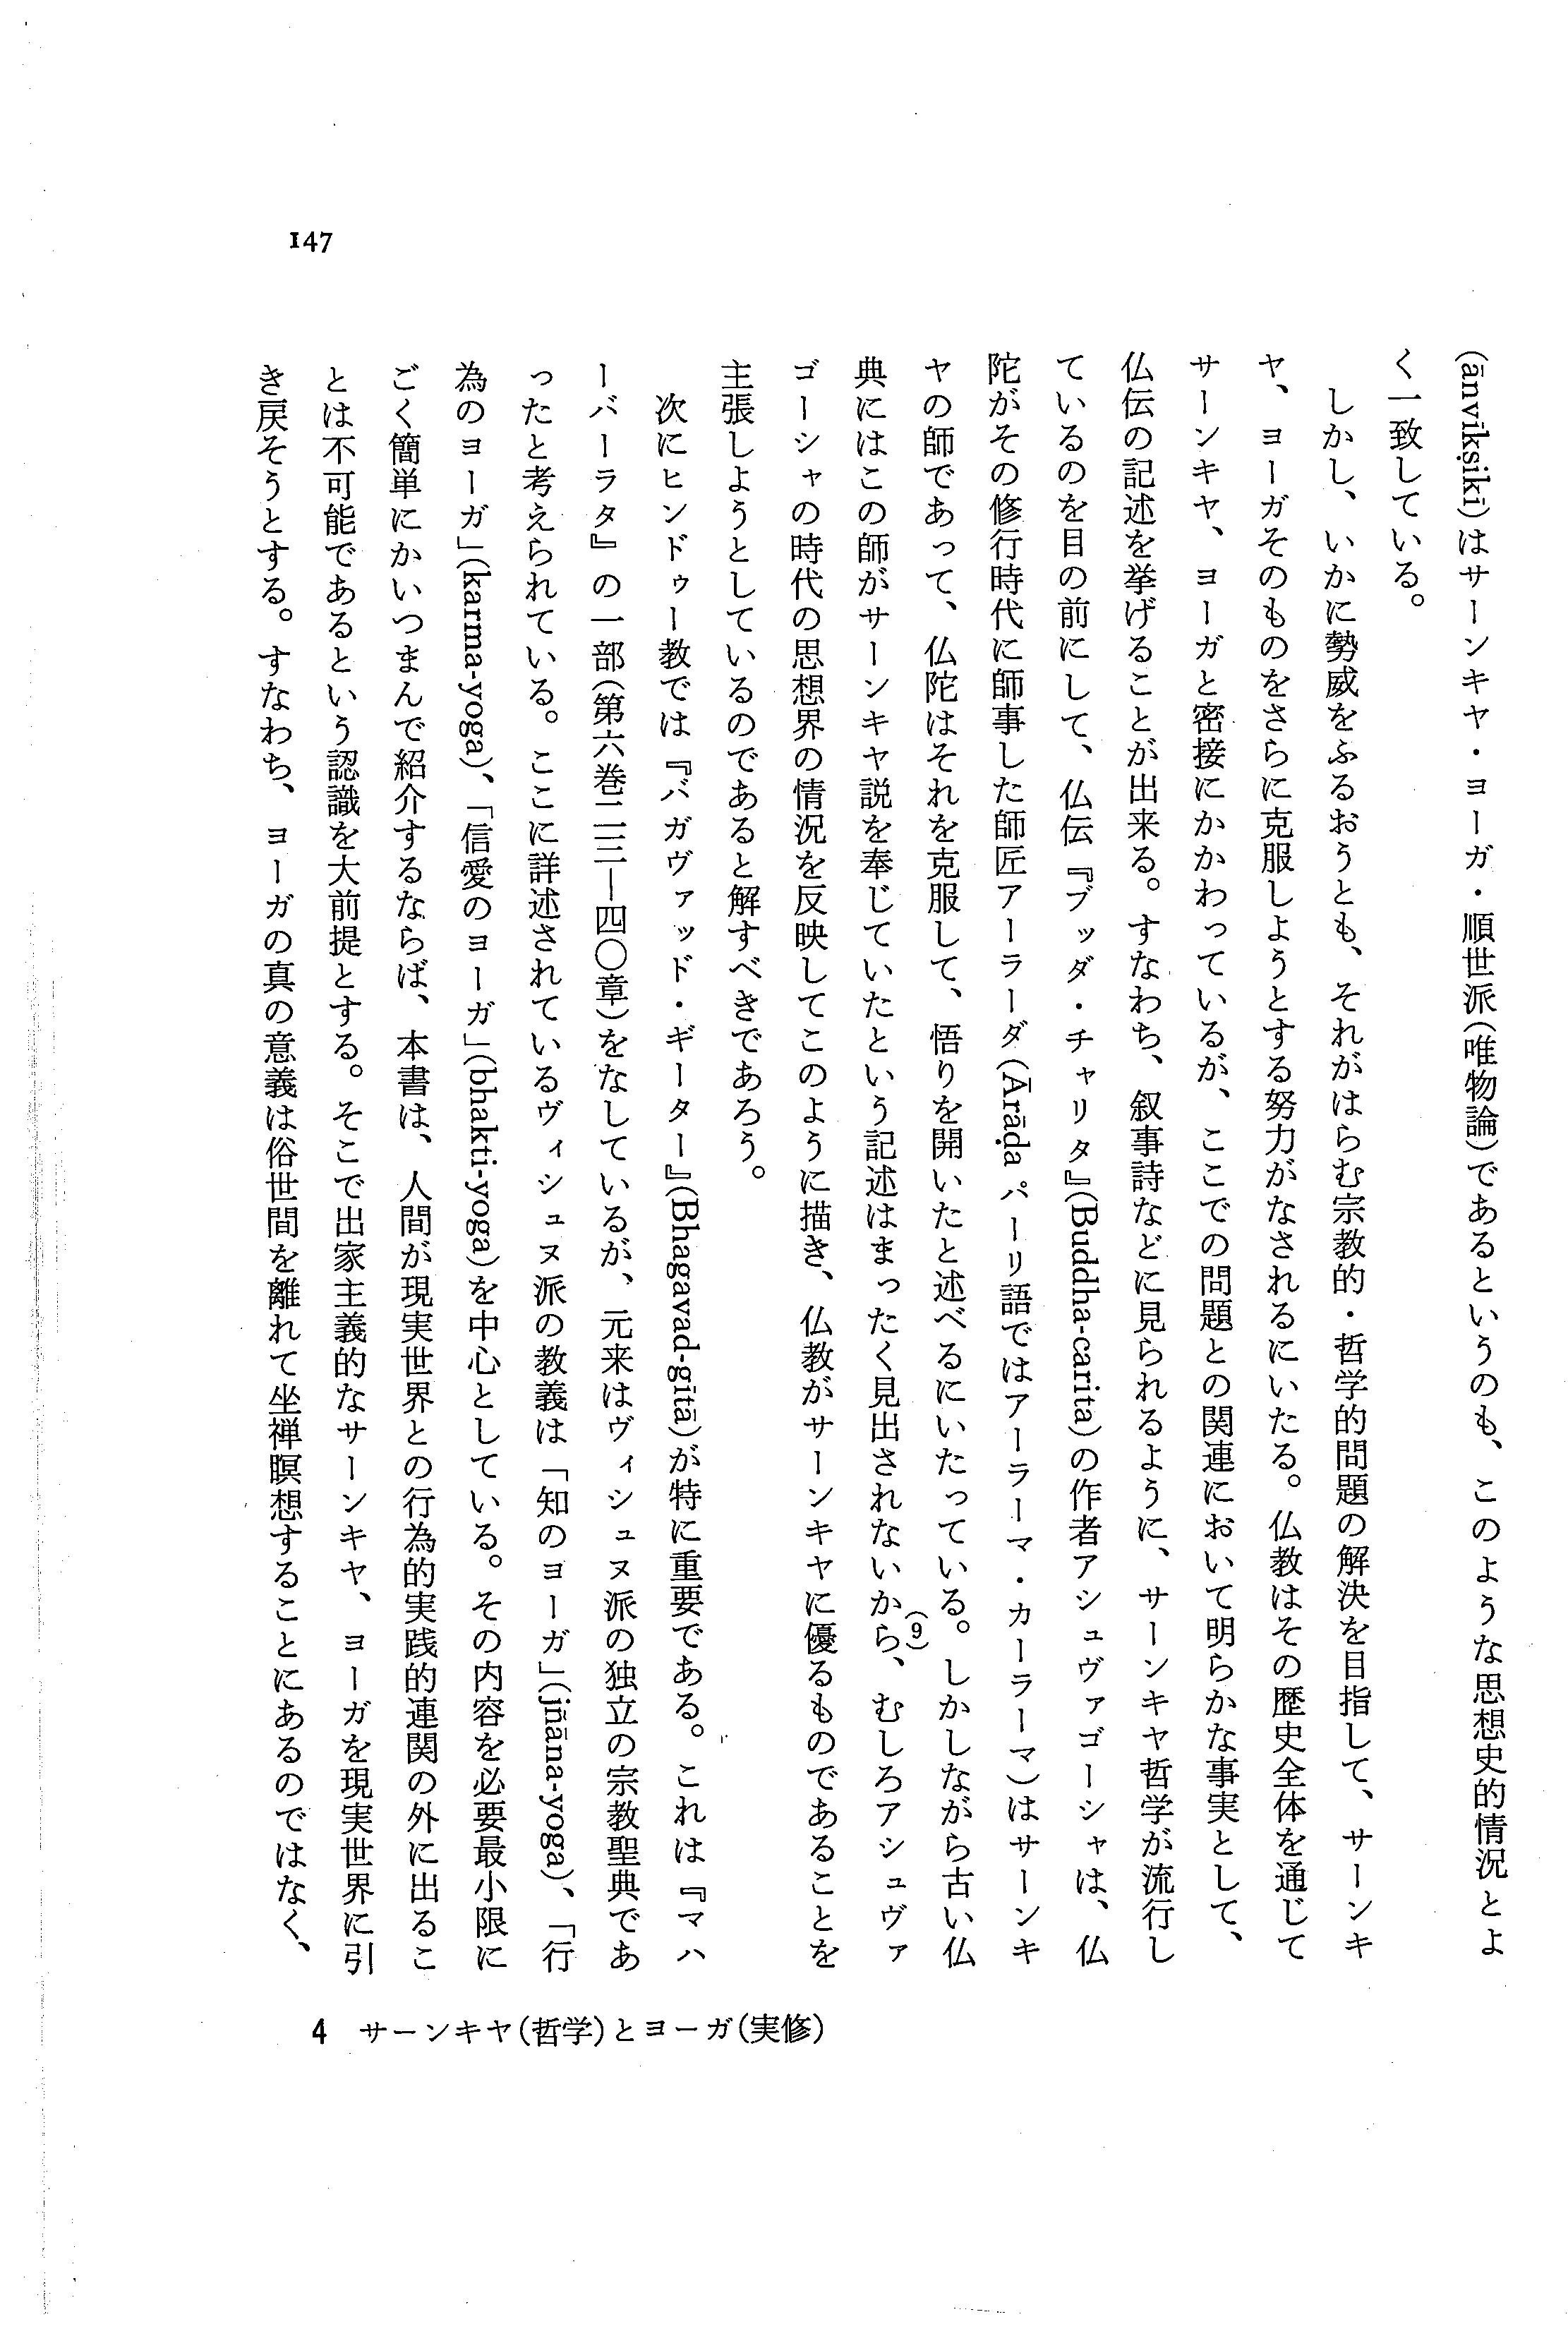 147
(ānvīkṣikī)はサーンキヤ・ヨーガ・順世派(唯物論)であるというのも、このような思想史的情況とよ
く一致している。
しかし、いかに勢威をふるおうとも、それがはらむ宗教的・哲学的問題の解決を目指して、サーンキ
ヤ、ヨーガそのものをさらに克服しようとする努力がなされるにいたる。仏教はその歴史全体を通じて
サーンキヤ、ヨーガと密接にかかわっているが、ここでの問題との関連において明らかな事実として、
仏伝の記述を挙げることが出来る。すなわち、叙事詩などに見られるように、サーンキヤ哲学が流行し
ているのを目の前にして、仏伝『ブッダ・チャリタ』(Buddha-carita)の作者アシュヴァゴーシャは、仏
陀がその修行時代に師事した師匠アーラーダ(Ārāḍa パーリ語ではアーラーマ・カーラーマ)はサーンキ
ヤの師であって、仏陀はそれを克服して、悟りを開いたと述べるにいたっている。(9)しかしながら古い仏
典にはこの師がサーンキヤ説を奉じていたという記述はまったく見出されないから、むしろアシュヴァ
ゴーシャの時代の思想界の情況を反映してこのように描き、仏教がサーンキヤに優るものであることを
主張しようとしているのであると解すべきであろう。
次にヒンドゥー教では『バガヴァッド・ギーター』(Bhagavad-gītā)が特に重要である。これは『マハ
ーバーラタ』の一部(第六巻二三―四〇章)をなしているが、元来はヴィシュヌ派の独立の宗教聖典であ
ったと考えられている。ここに詳述されているヴィシュヌ派の教義は「知のヨーガ」(jñāna-yoga)、「行
為のヨーガ」(karma-yoga)、「信愛のヨーガ」(bhakti-yoga)を中心としている。その内容を必要最小限に
ごく簡単にかいつまんで紹介するならば、本書は、人間が現実世界との行為的実践的連関の外に出るこ
とは不可能であるという認識を大前提とする。そこで出家主義的なサーンキヤ、ヨーガを現実世界に引
き戻そうとする。すなわち、ヨーガの真の意義は俗世間を離れて坐禅瞑想することにあるのではなく、
4 サーンキヤ(哲学)とヨーガ(実修)